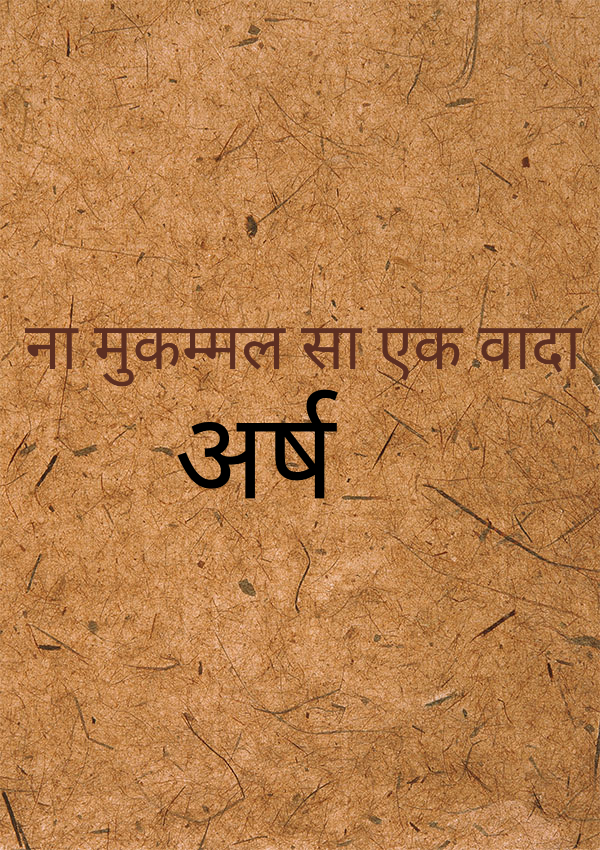 ना मुकम्मल सा एक वादा
अर्ष